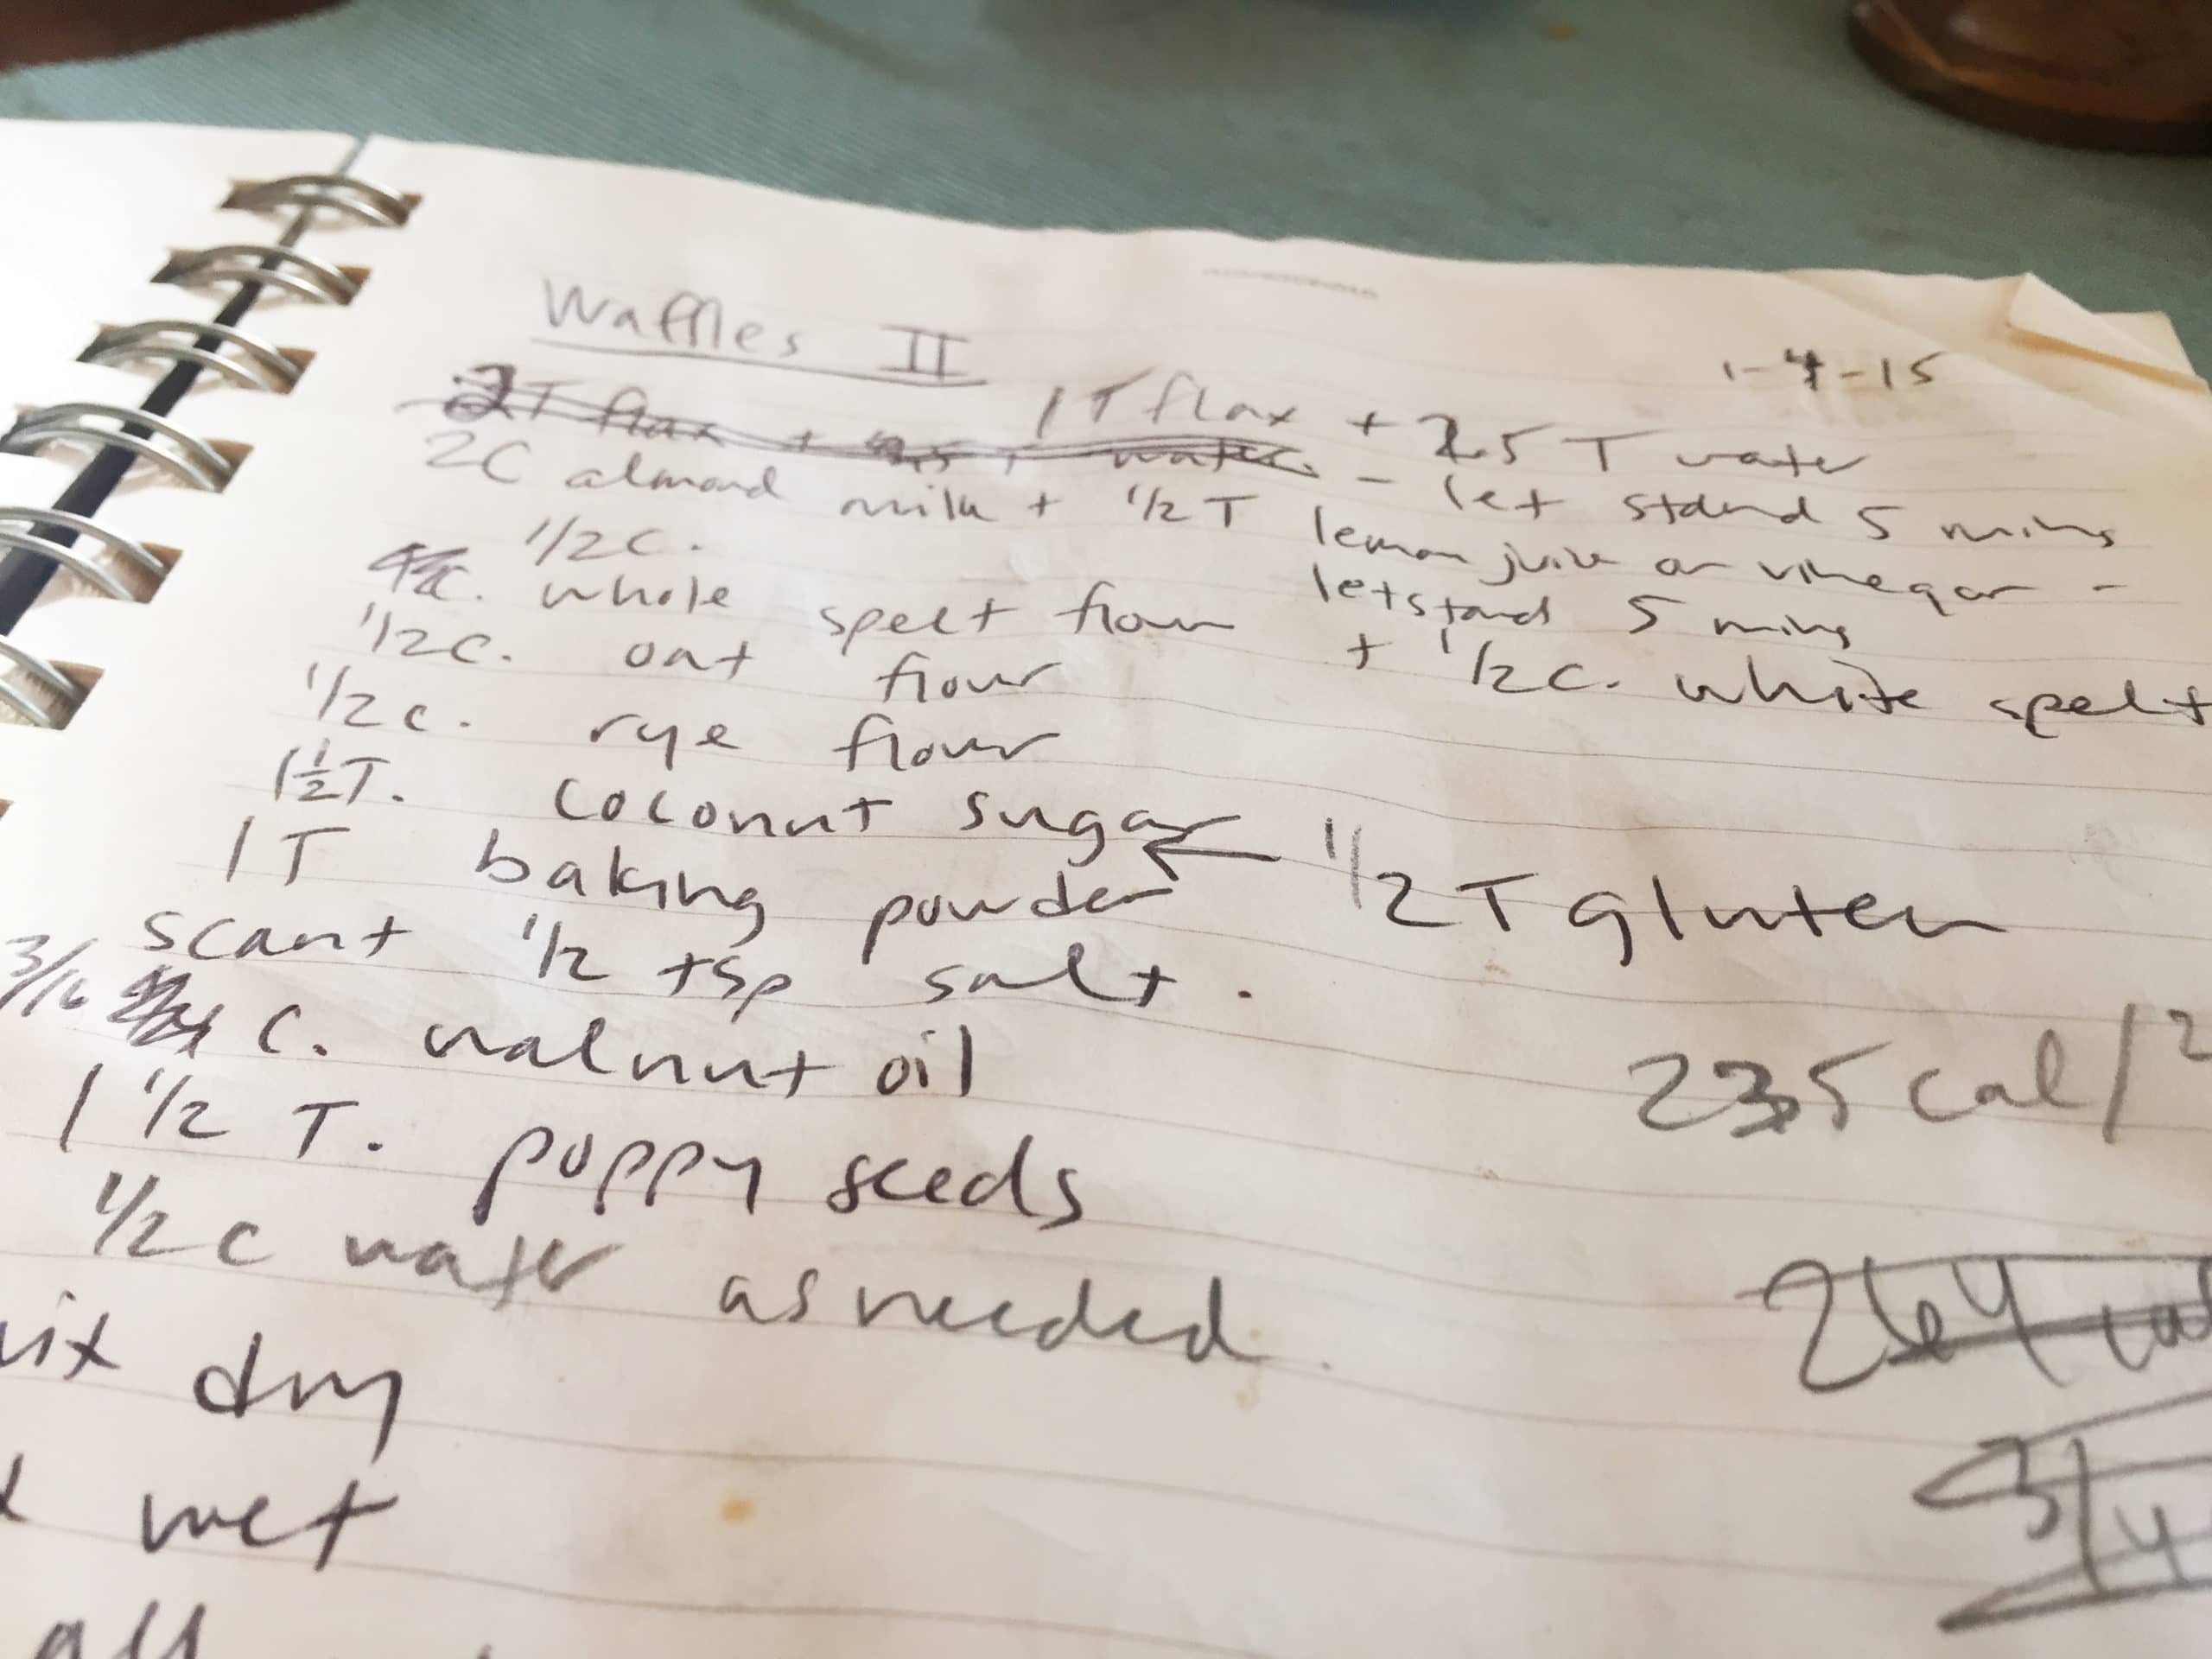 Waffles II
1-4-15
2T flax + water
1T flax + 2.5 T water
- let stand 5 mins
2C almond milk + 1/2 T lemon juice or vinegar -
let stand 5 mins
1/2 C.
whole spelt flour + 1/2 C. white spelt
1/2 C. oat flour
1/2 C. rye flour
1 1/2 T. coconut sugar
← 1/2 T gluten
1T baking powder
scant 1/2 tsp salt.
3/16 C. walnut oil
235 cal/2
1 1/2 T. poppy seeds
1/2 C water as needed.
264 cal
dry
3/4
wet
all